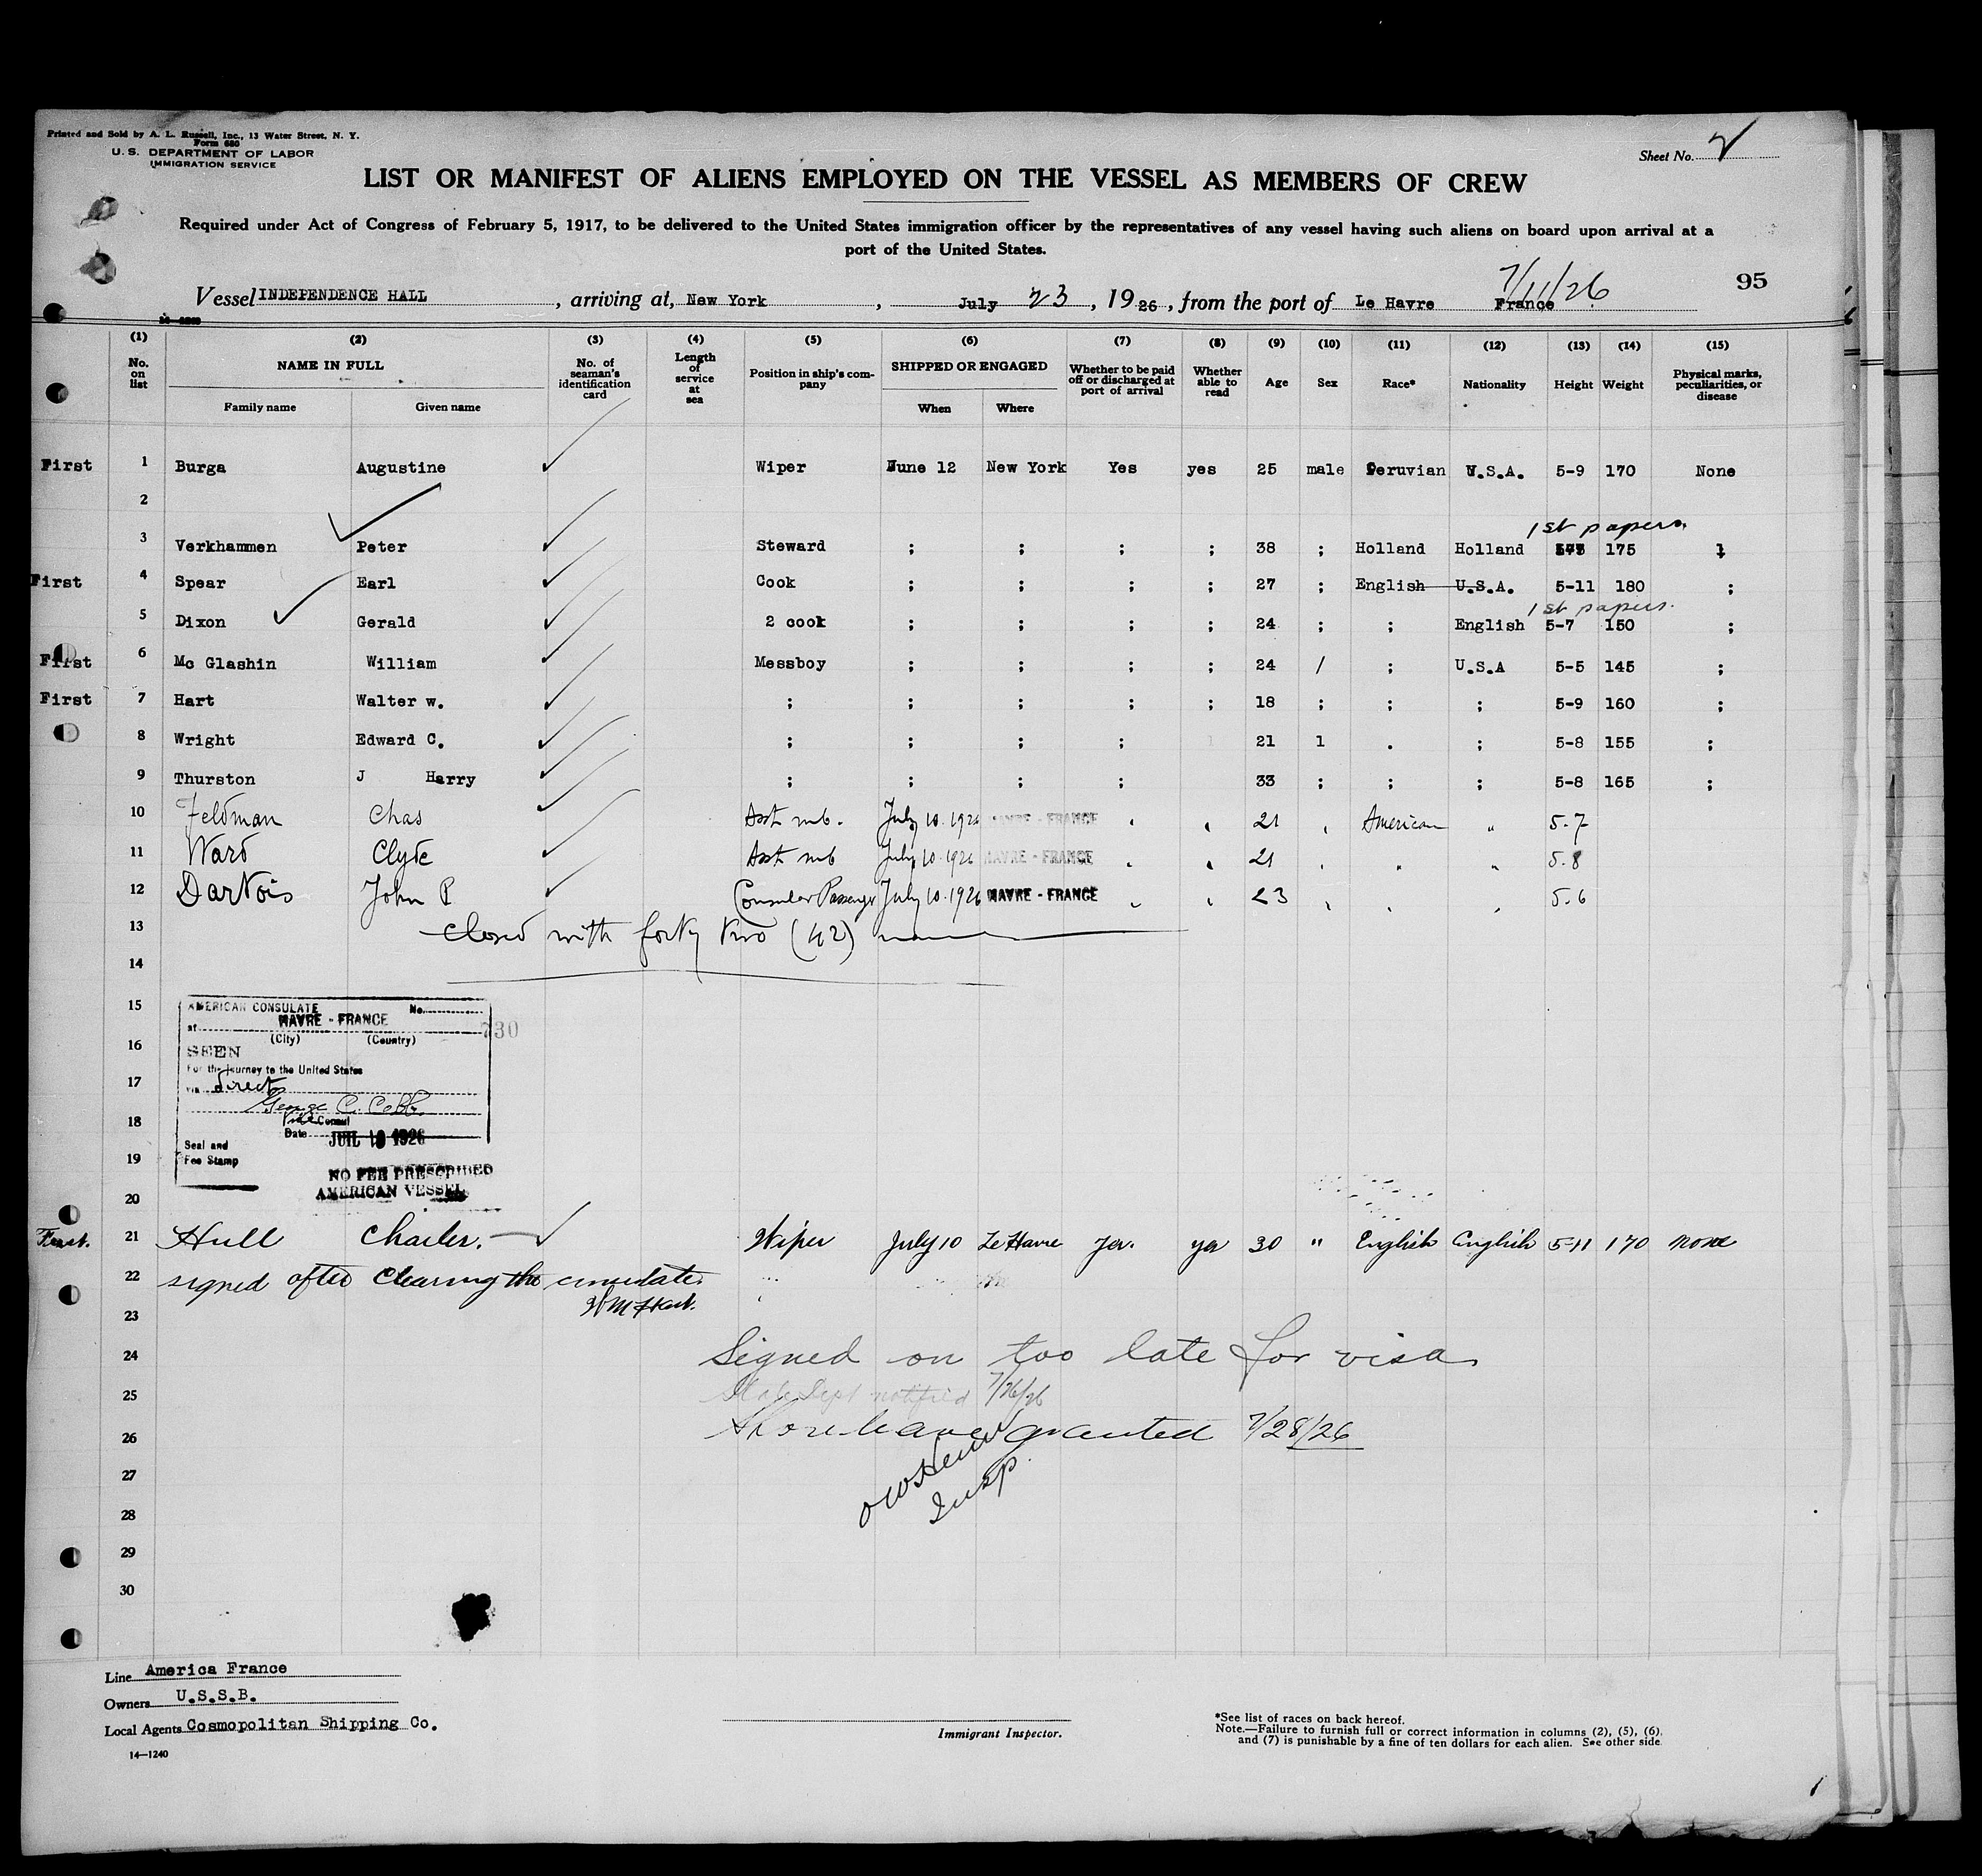 Printed and Sold by A. L. Russell, Inc., 13 Water Street, N. Y.
Form 680
U. S. DEPARTMENT OF LABOR
IMMIGRATION SERVICE
Sheet No. 2
LIST OR MANIFEST OF ALIENS EMPLOYED ON THE VESSEL AS MEMBERS OF CREW
Required under Act of Congress of February 5, 1917, to be delivered to the United States immigration officer by the representatives of any vessel having such aliens on board upon arrival at a
port of the United States.
7/11/26
95
Vessel INDEPENDENCE HALL, arriving at, New York, July 23, 1926, from the port of Le Havre France
(1) (2) (3) (4) (5) (6) (7) (8) (9) (10) (11) (12) (13) (14) (15)
No. on list NAME IN FULL No. of seaman's identification card Length of service at sea Position in ship's company SHIPPED OR ENGAGED Whether to be paid off or discharged at port of arrival Whether able to read Age Sex Race* Nationality Height Weight Physical marks, peculiarities, or disease
Family name Given name When Where
First 1 Burga Augustine Wiper June 12 New York Yes yes 25 male Peruvian U.S.A. 5-9 170 None
2
1st papers.
3 Verkhammen Peter Steward ; ; ; ; 38 ; Holland Holland 175
First 4 Spear Earl Cook ; ; ; ; 27 ; English U.S.A. 5-11 180 ;
1st papers.
5 Dixon Gerald 2 cook ; ; ; ; 24 ; ; English 5-7 150 ;
First 6 Mc Glashin William Messboy ; ; ; ; 24 / ; U.S.A 5-5 145 ;
First 7 Hart Walter w. ; ; ; ; ; 18 ; ; ; 5-9 160 ;
8 Wright Edward C. ; ; ; ; 21 1 . ; 5-8 155 ;
9 Thurston J Harry ; ; ; ; 33 ; ; ; 5-8 165 ;
10 Feldman Chas Asst mb. July 10.1926 HAVRE - FRANCE " " 21 " American " 5.7
11 Ward Clyde Asst mb July 10.1926 HAVRE - FRANCE " " 21 " " " 5.8
12 DarNois John P Consular Passenger July 10.1926 HAVRE - FRANCE " " 23 " " " 5.6
13 Closed with forty two (42)
14
15 AMERICAN CONSULATE No.
at HAVRE - FRANCE 730
(City) (Country)
16 SEEN
For the journey to the United States
17 via direct
George C. Cobb
18 Vice Consul
Date JUIL 10 1926
Seal and
19 Fee Stamp
NO FEE PRESCRIBED
AMERICAN VESSEL
20
First. 21 Hull Charles. Wiper July 10 Le Havre Yes. yes 30 " English English 5-11 170 none
22 signed after clearing the consulate.
23 WM Hart.
24 Signed on too late for visa
25 State Dept notified 7/26/26
26 Shore leave granted 7/28/26
27 Insp
28
29
30
Line America France
Owners U.S.S.B.
Local Agents Cosmopolitan Shipping Co.
14—1240
Immigrant Inspector.
*See list of races on back hereof.
Note.—Failure to furnish full or correct information in columns (2), (5), (6),
and (7) is punishable by a fine of ten dollars for each alien. See other side.